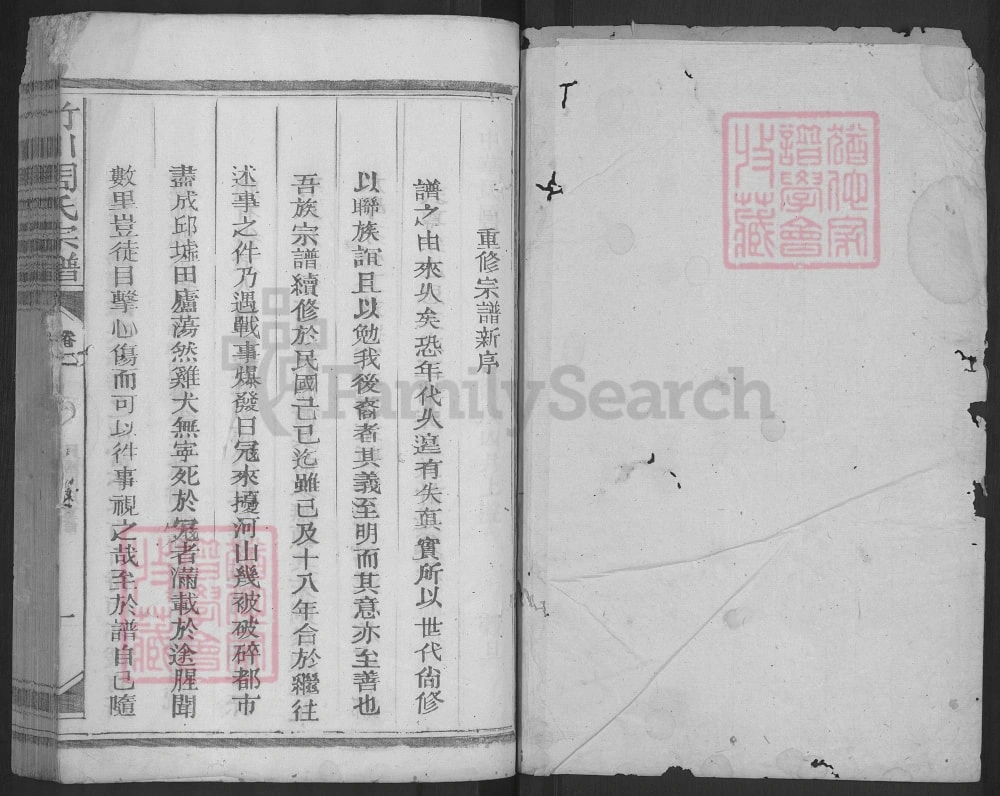 重修宗譜新序
譜之由來久矣恐年代久遠有失真實所以世代尚修
以聯族誼且以勉我後裔者其義至明而其意亦至善也
吾族宗譜續修於民國己巳迄雖已及十八年合於繼往
述事之件乃遇戰事爆發日冦來擾河山幾被破碎都市
盡成邱墟田廬蕩然雞犬無宁死於冦者滿載於途腥聞
數里豈徒目擊心傷而可以件事視之哉至於譜自已隨
竹川周氏宗譜
卷一
一
譜學會
收藏
FamilySearch